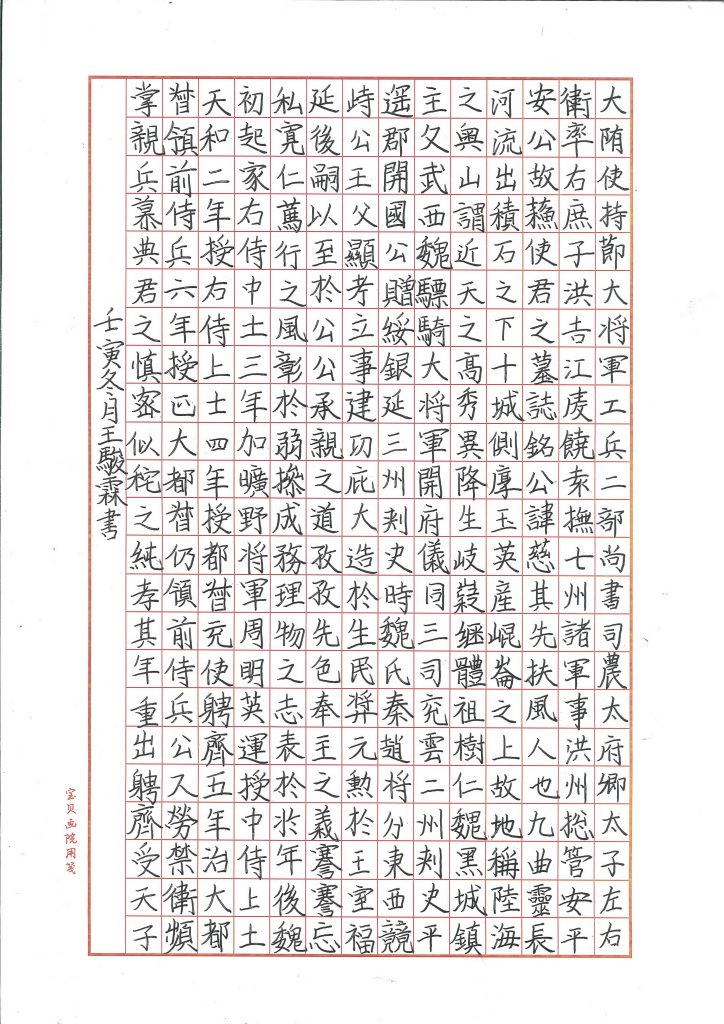 大陏使持節大将軍工兵二部尚書司農太府卿太子左右
衛率右庶子洪吉江虔饒袁撫七州諸軍事洪州揔管安平
安公故蘓使君之墓誌銘公諱慈其先扶風人也九曲靈長
河流出積石之下十城側厚玉英産崐崙之上故地稱陸海
之奥山謂近天之髙秀異降生岐嶷継體祖樹仁魏黒城鎮
主父武西魏驃騎大将軍開府儀同三司兖雲二州刾史平
遥郡開國公贈綏銀延三州刾史時魏氏秦趙将分東西競
峙公王父顯考立事建功庇大造於生民奨元勲於王室福
延後嗣以至於公公承親之道孜孜先色奉主之義謇謇忘
私寛仁篤行之風彰於弱撡成務理物之志表於壮年後魏
初起家右侍中士三年加曠野将軍周明英運授中侍上士
天和二年授右侍上士四年授都督充使聘齊五年治大都
督領前侍兵六年授正大都督仍領前侍兵公久勞禁衛頻
掌親兵慕典君之慎密似秺之純孝其年重出聘齊受天子
壬寅冬月王駿霖書
宝贝画院用笺